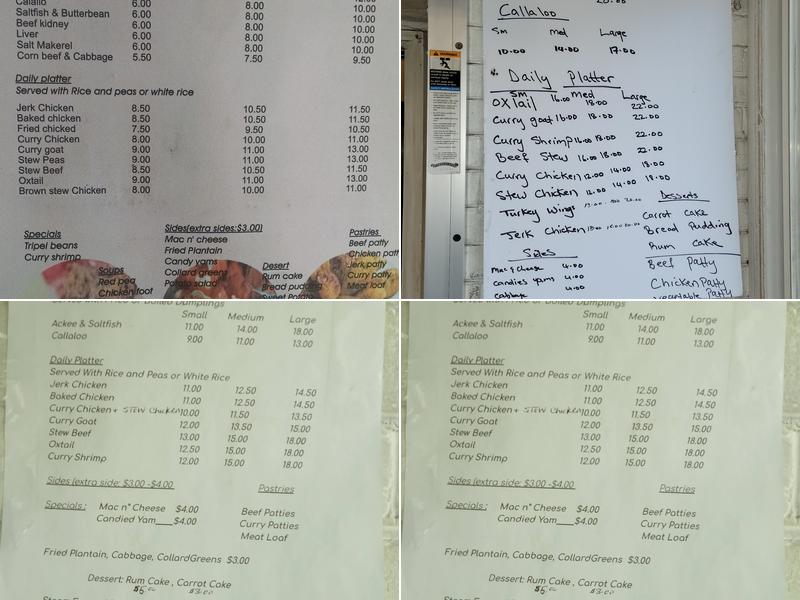 Calallo 6.00 8.00
Saltfish & Butterbean 6.00 8.00 10.00
Beef kidney 6.00 8.00 10.00
Liver 6.00 8.00 10.00
Salt Makerel 6.00 8.00 10.00
Corn beef & Cabbage 5.50 7.50 9.50
Daily platter
Served with Rice and peas or white rice
Jerk Chicken 8.50 10.50 11.50
Baked chicken 8.50 10.50 11.50
Fried chicked 7.50 9.50 10.50
Curry Chicken 8.00 10.00 11.00
Curry goat 9.00 11.00 13.00
Stew Peas 9.00 11.00 13.00
Stew Beef 8.50 10.50 11.50
Oxtail 9.00 11.00 13.00
Brown stew Chicken 8.00 10.00 11.00
Specials
Tripel beans
Curry shrimp
Soups
Red pea
Chicken foot
Sides(extra sides:$3.00)
Mac n' cheese
Fried Plantain
Candy yams
Collard greens
Potato salad
Desert
Rum cake
Bread pudding
Sweet Potato
Pastries
Beef patty
Chicken patt
Jerk patty
Curry patty
Meat loaf
20.00
Callaloo
Sm med Large
10.00 14.00 17.00
Daily Platter
Sm med Large
Oxtail 16.00 18.00 22.00
Curry goat 16.00 18.00 22.00
Curry Shrimp 16.00 18.00 22.00
Beef Stew 16.00 18.00 22.00
Curry Chicken 12.00 14.00 18.00
Stew Chicken 12.00 14.00 18.00
Turkey Wings
Jerk Chicken
Sides
Mac & Cheese 4.00
Candies yams 4.00
Cabbage 4.00
Desserts
Carrot Cake
Bread Pudding
Rum Cake
Beef Patty
Chicken Patty
Vegetable Patty
Served with Rice or Boiled Dumplings
Small Medium Large
Ackee & Saltfish 11.00 14.00 18.00
Callaloo 9.00 11.00 13.00
Daily Platter
Served With Rice and Peas or White Rice
Jerk Chicken 11.00 12.50 14.50
Baked Chicken 11.00 12.50 14.50
Curry Chicken + STEW Chicken 10.00 11.50 13.50
Curry Goat 12.00 13.50 15.00
Stew Beef 13.00 15.00 18.00
Oxtail 12.50 15.00 18.00
Curry Shrimp 12.00 15.00 18.00
Sides (extra side: $3.00 -$4.00
Pastries
Specials: Mac n" Cheese $4.00
Candied Yam___$4.00
Beef Patties
Curry Patties
Meat Loaf
Fried Plantain, Cabbage, CollardGreens $3.00
Dessert: Rum Cake , Carrot Cake
$5.00 $3.00
Served with Rice or Boiled Dumplings
Small Medium Large
Ackee & Saltfish 11.00 14.00 18.00
Callaloo 9.00 11.00 13.00
Daily Platter
Served With Rice and Peas or White Rice
Jerk Chicken 11.00 12.50 14.50
Baked Chicken 11.00 12.50 14.50
Curry Chicken + STEW Chicken 10.00 11.50 13.50
Curry Goat 12.00 13.50 15.00
Stew Beef 13.00 15.00 18.00
Oxtail 12.50 15.00 18.00
Curry Shrimp 12.00 15.00 18.00
Sides (extra side: $3.00 -$4.00
Pastries
Specials: Mac n" Cheese $4.00
Candied Yam___$4.00
Beef Patties
Curry Patties
Meat Loaf
Fried Plantain, Cabbage, CollardGreens $3.00
Dessert: Rum Cake , Carrot Cake
$5.00 $3.00